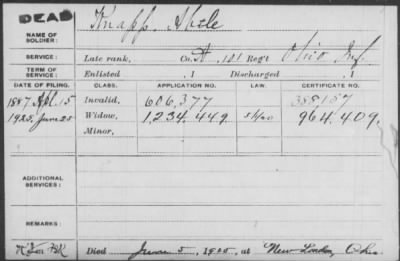 DEAD
NAME OF SOLDIER: Knapp, Able
SERVICE: Late rank, Co. A, 101 Reg't Ohio Inf.
TERM OF SERVICE: Enlisted , 1 Discharged , 1
DATE OF FILING. CLASS. APPLICATION NO. LAW. CERTIFICATE NO.
1887 Apl. 15 Invalid, 606,377 388,157
1925, June 25 Widow, 1,234,449 964,409.
Minor,
ADDITIONAL SERVICES:
REMARKS:
Died June 5, 1925, at New London, Ohio